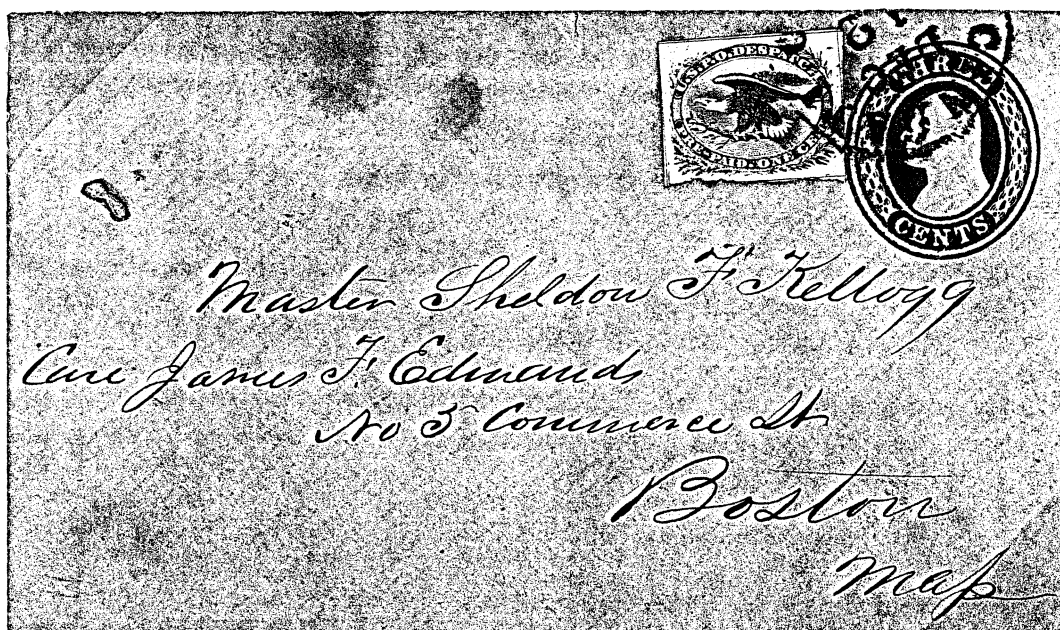 U.S.P.O. DESPATCH
PRE-PAID. ONE CENT
THREE
CENTS
Master Sheldon F. Kellogg
Care James F. Edmands
No 5 Commerce St
Boston
Mass